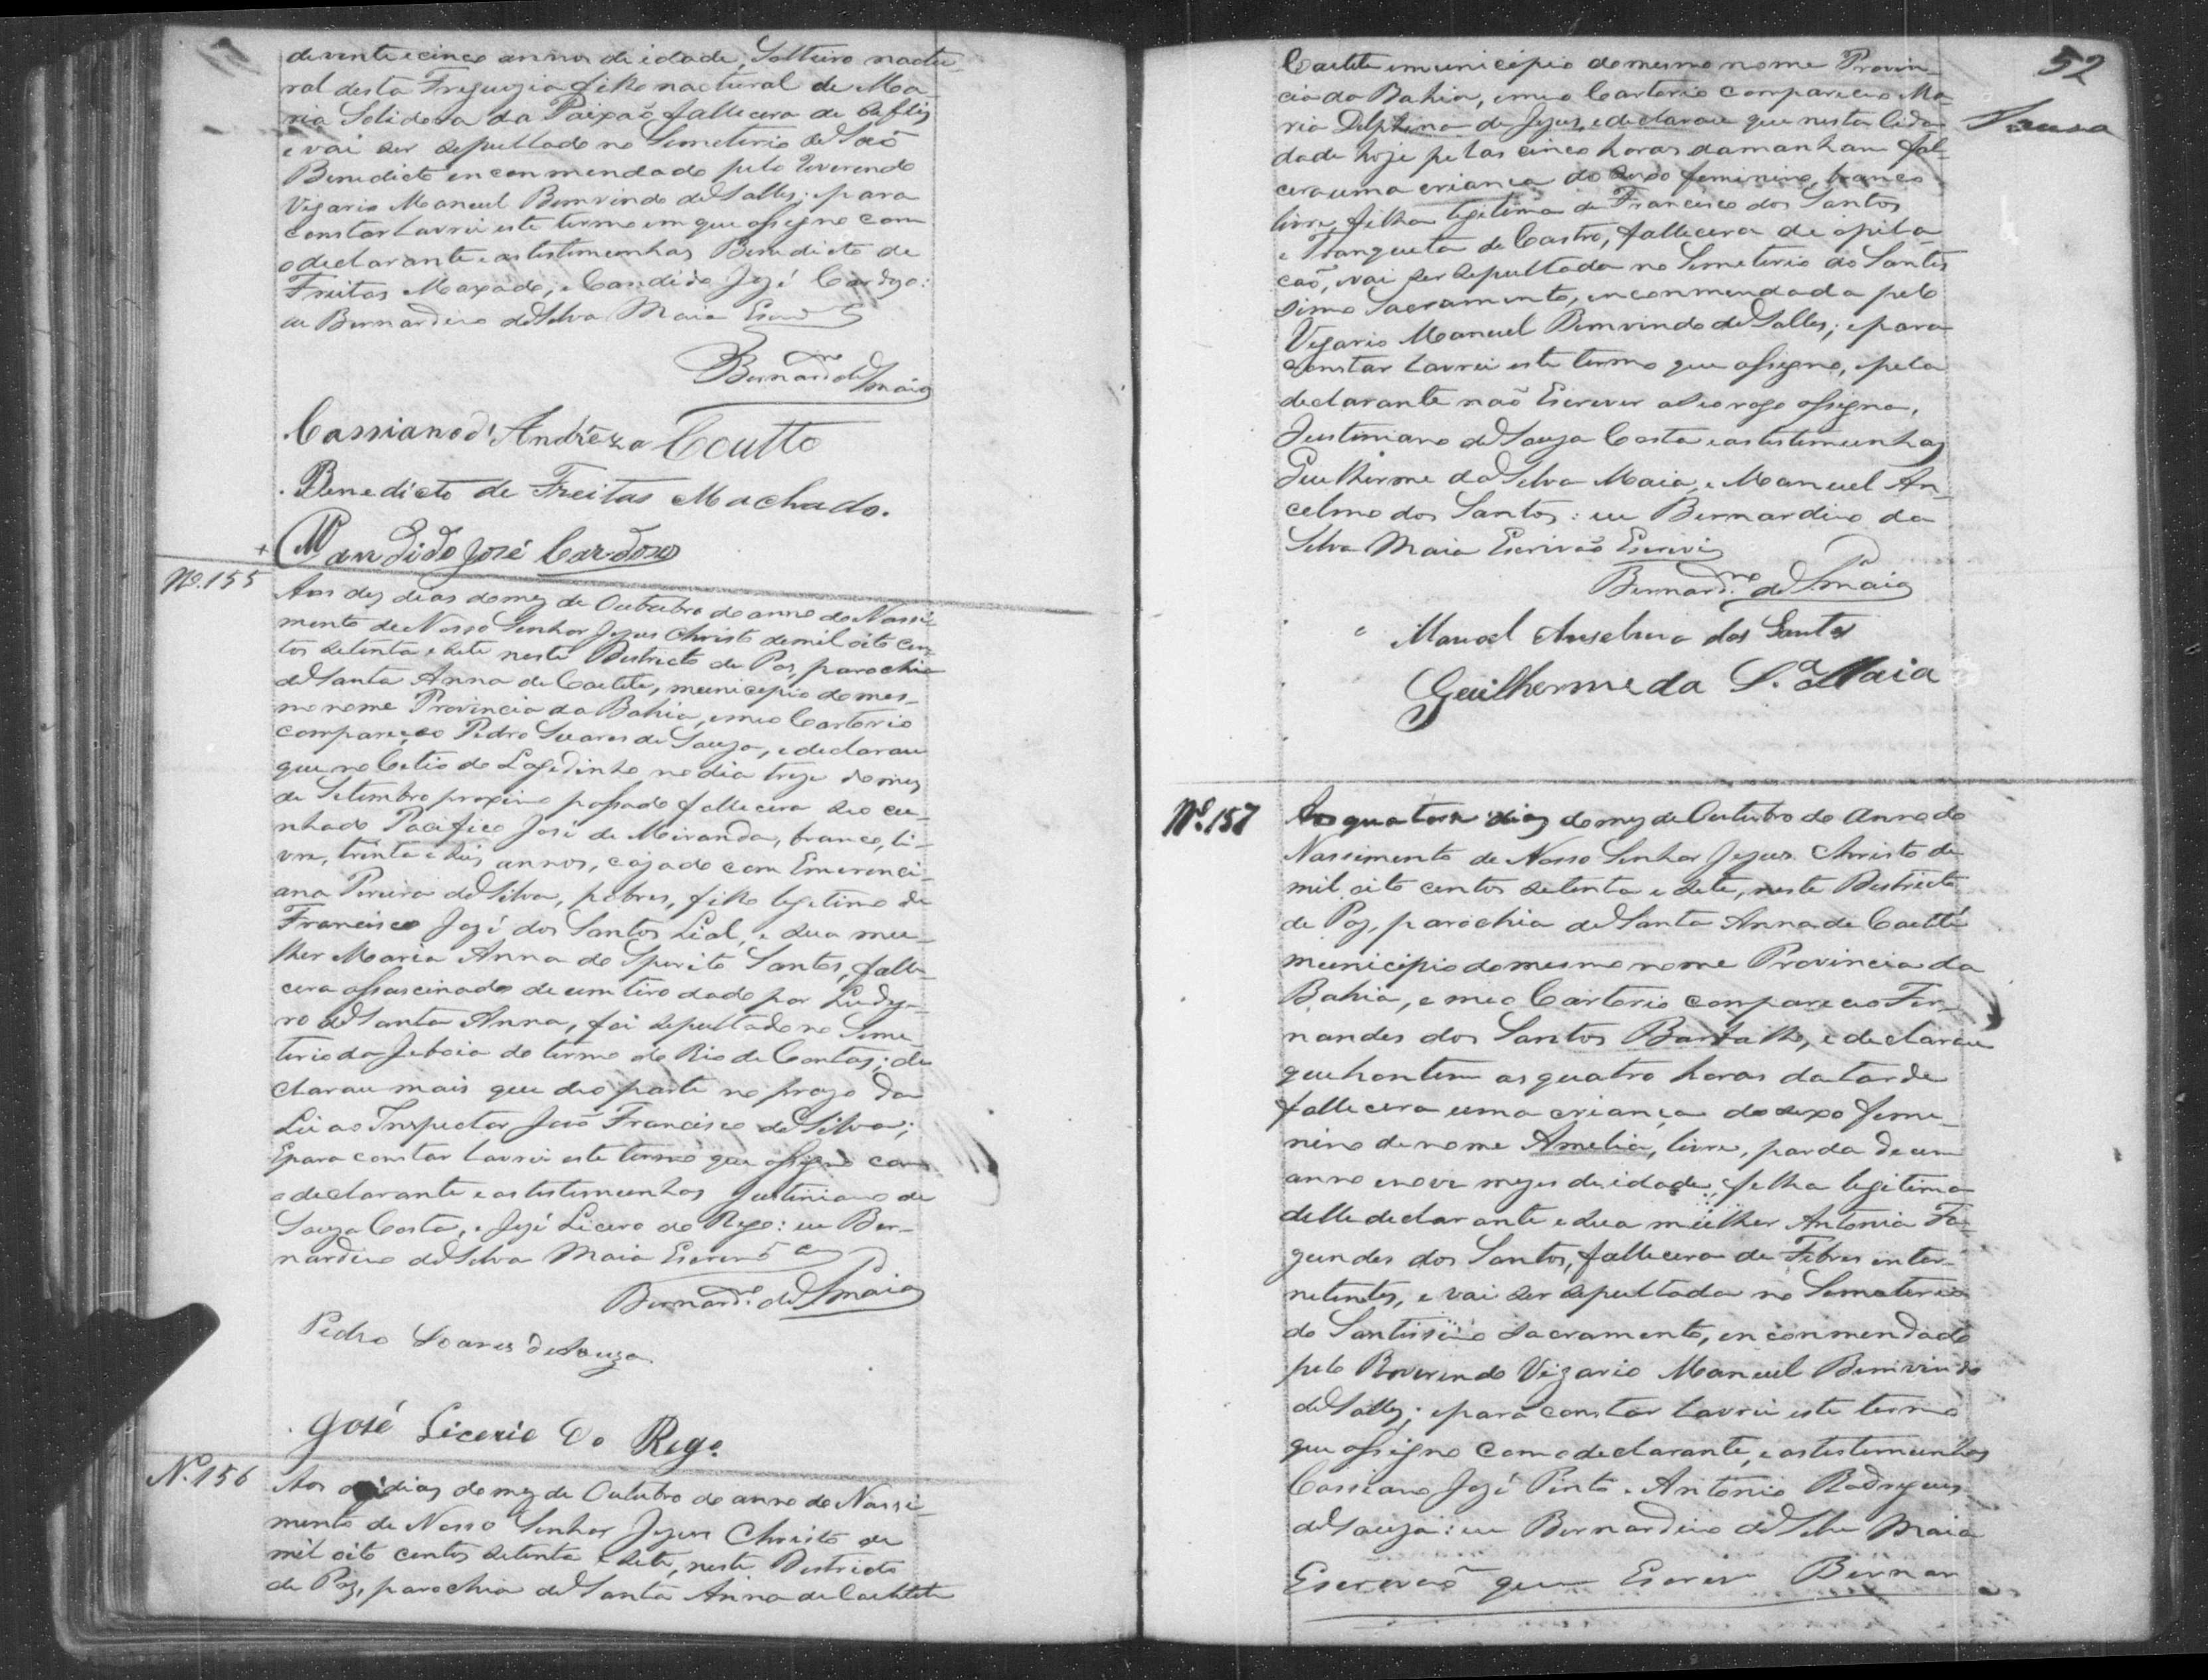 de vinte e cinco annos de idade, Solteiro natu-
ral desta Freguezia filho nactural de Ma-
ria Selidoria da Paixaõ, fallecera de
e vai ser sepultado no Semeterio de Saõ
Benedicto enconmendado pelo Reverendo
Vigario Manuel Bemvindo de Salles; e para
constar lavrei este termo em que assigno com
o declarante e as testimunhas Benedicto de
Freitas Maxado, e Candido José Cardozo:
eu Bernardino da Silva Maia
Bernardno da Sa Maia
Cassiano d'Andreza Coutto
Benedicto de Freitas Machado.
Candido José Cardoso
Nº. 155
Aos dez dias do mez de Outubro do anno do Nassi-
mento de Nosso Senhor Jezus Christo de mil oito cen-
tos setenta e sete neste Destricto de Paz, parochia
de Santa Anna de Caetete, municipio do mes-
mo nome Provincia da Bahia, e meo Cartorio
compareçeo Pedro Suares de Souza, e declarou
que no Cetio do Lagedinho, no dia treze do mez
de Setembro proximo passado fallecera seo cu-
nhado Pacifico José de Miranda, branco, li-
vre, trinta e dois annos, cazado com Emerenci-
ana Pereira da Silva, pobres, filho legetimo de
Francisco José dos Santos Lial, e sua mu-
lher Maria Anna do Sperito Santos, falle-
cera assascinado de um tiro dado por Ludge-
ro de Santa Anna, foi sepultado no Seme-
terio da Jeboia do termo do Rio de Contas; de
clarou mais que deo parte no prazo da
Lei ao Inspector Joaõ Francisco da Silva;
E para constar lavrei este termo que assigno com
o declarante e as testemunhas Justiniano de
Souza Costa, e José Licero do Rego: eu Ber-
nardino da Silva Maia
Bernardo. da Sa Maia
Pedro Soares de Souza
José Licerio do Rego
Nº. 156
Aos dias do mez de Outubro do anno do Nassi-
mento de Nosso Senhor Jezus Christo de
mil oito centos setenta e sete, neste Destricto
de Paz, parochia de Santa Anna de Caetete
52
Caetete e municipio do mesmo nome Provin-
cia da Bahia, e meo Cartorio compareceo Ma-
ria Delphina de Jezus, e declarou que nesta Cida
dade hoje pelas cinco horas damanham fal-
cera uma criança do sexo feminino, branco
livre, filha legitima de Francisco dos Santos
e Tranqueta de Castro, fallecera de opila-
caõ, e vai ser sepultada no Semeterio do Santis
simo Sacramento, enconmendada pelo
Vegario Manuel Bemvindo de Salles; e para
constar lavrei este termo que assigno, e pela
declarante naõ Escrever a seo rogo assigna,
Justiniano de Souza Costa e as testimunhas
Guilherme da Silva Maia, e Manuel An-
celmo dos Santos: eu Bernardino da
Silva Maia Escrivaõ Escrevi
Bernardno. da Sa Maia
Manoel Anselmo dos Santos
Guilherme da S.ª Maia
Nº. 157
Aos quatorze dias do mez de Outubro do Anno do
Nassimento de Nosso Senhor Jezus Christo de
mil oito centos setenta e sete, neste Destricto
de Paz, parochia de Santa Anna de Caetité
municipio do mesmo nome Provincia da
Bahia, e meo Cartorio compareceo Fer-
nandes dos Santos Bartalho, e declarou
que hontem as quatro horas da tarde
fallecera uma criança do sexo feme-
nino de nome Amelia, livre, parda de um
anno e nove mezes de idade, filha legitima
delle declarante e sua mulher Antonia Fa-
gundes dos Santos, fallecera de Febres inter-
netentes, e vai ser sepultada no Semeterio
do Santissimo Sacramento, enconmendado
pelo Reverendo Vigario Manuel Bemvindo
de Salles; e para constar lavrei este termo
que assigno com o declarante, e as testemunhas
Cassiano José Pinto e Antonio Rodrigues
de Souza: eu Bernardino da Silva Maia
Escrivaõ que Escrevi Bernar